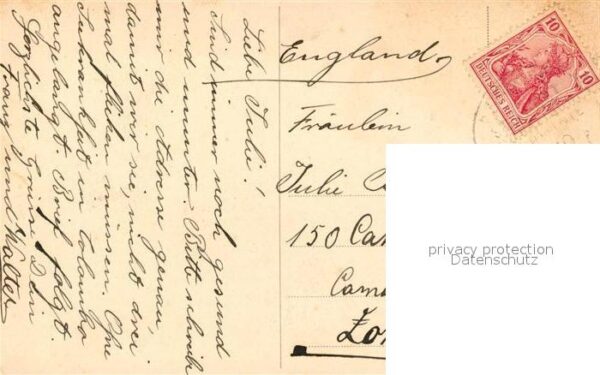 Liebe Julie!
Sind immer noch gesund
und munter. Bitte schreib
mir die Adresse genau,
damit wir sie nicht drei
mal flicken müssen. Ohne
in Colombo
angelangt. Brief folgt.
Herzlichste Grüsse
Franz und Walter
England.
Fräulein
Julie
150
Lon
10
10
DEUTSCHES REICH
privacy protection
Datenschutz